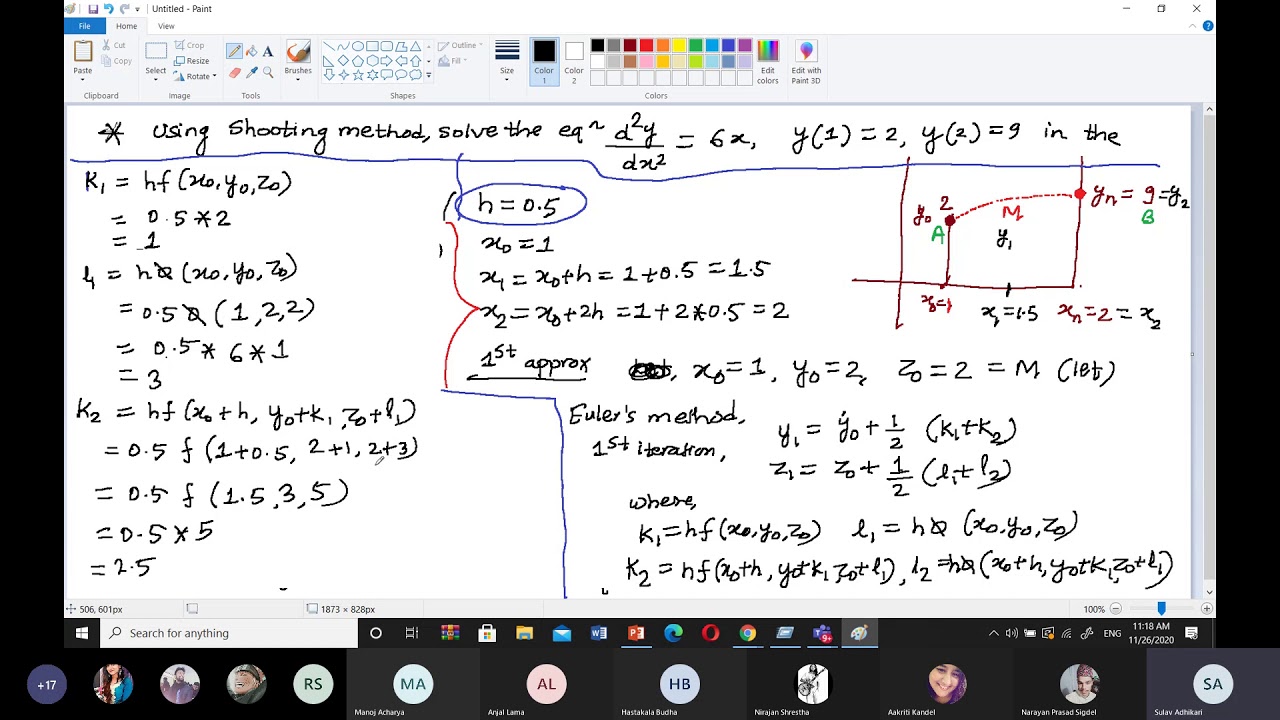 Untitled - Paint
File Home View
Paste Cut Copy Clipboard
Select Crop Resize Rotate Image
Tools
Brushes
Outline Fill Shapes
Size
Color 1 Color 2 Edit colors Colors
Edit with Paint 3D
* Using Shooting method, solve the eqⁿ d²y/dx² = 6x, y(1) = 2, y(2) = 9 in the
K₁ = hf(x₀, y₀, z₀)
= 0.5 * 2
= 1
l₁ = hφ(x₀, y₀, z₀)
= 0.5 φ(1, 2, 2)
= 0.5 * 6 * 1
= 3
K₂ = hf(x₀+h, y₀+k₁, z₀+l₁)
= 0.5 f(1+0.5, 2+1, 2+3)
= 0.5 f(1.5, 3, 5)
= 0.5 * 5
= 2.5
h = 0.5
x₀ = 1
x₁ = x₀+h = 1+0.5 = 1.5
x₂ = x₀+2h = 1+2*0.5 = 2
1st approx x₀ = 1, y₀ = 2, z₀ = 2 = M (let)
y₀ 2 A M y₁ yₙ = 9 = y₂ B
x₀=1 x₁=1.5 xₙ=2 = x₂
Euler's method,
1st iteration,
y₁ = y₀ + 1/2 (k₁+k₂)
z₁ = z₀ + 1/2 (l₁+l₂)
where,
K₁ = hf(x₀, y₀, z₀) l₁ = hφ(x₀, y₀, z₀)
K₂ = hf(x₀+h, y₀+k₁, z₀+l₁), l₂ = hφ(x₀+h, y₀+k₁, z₀+l₁)
506, 601px 1873 × 828px 100%
Search for anything
ENG 11:18 AM 11/26/2020
+17 RS MA AL HB SA
Manoj Acharya Anjal Lama Hastakala Budha Nirajan Shrestha Aakriti Kandel Narayan Prasad Sigdel Sulav Adhikari